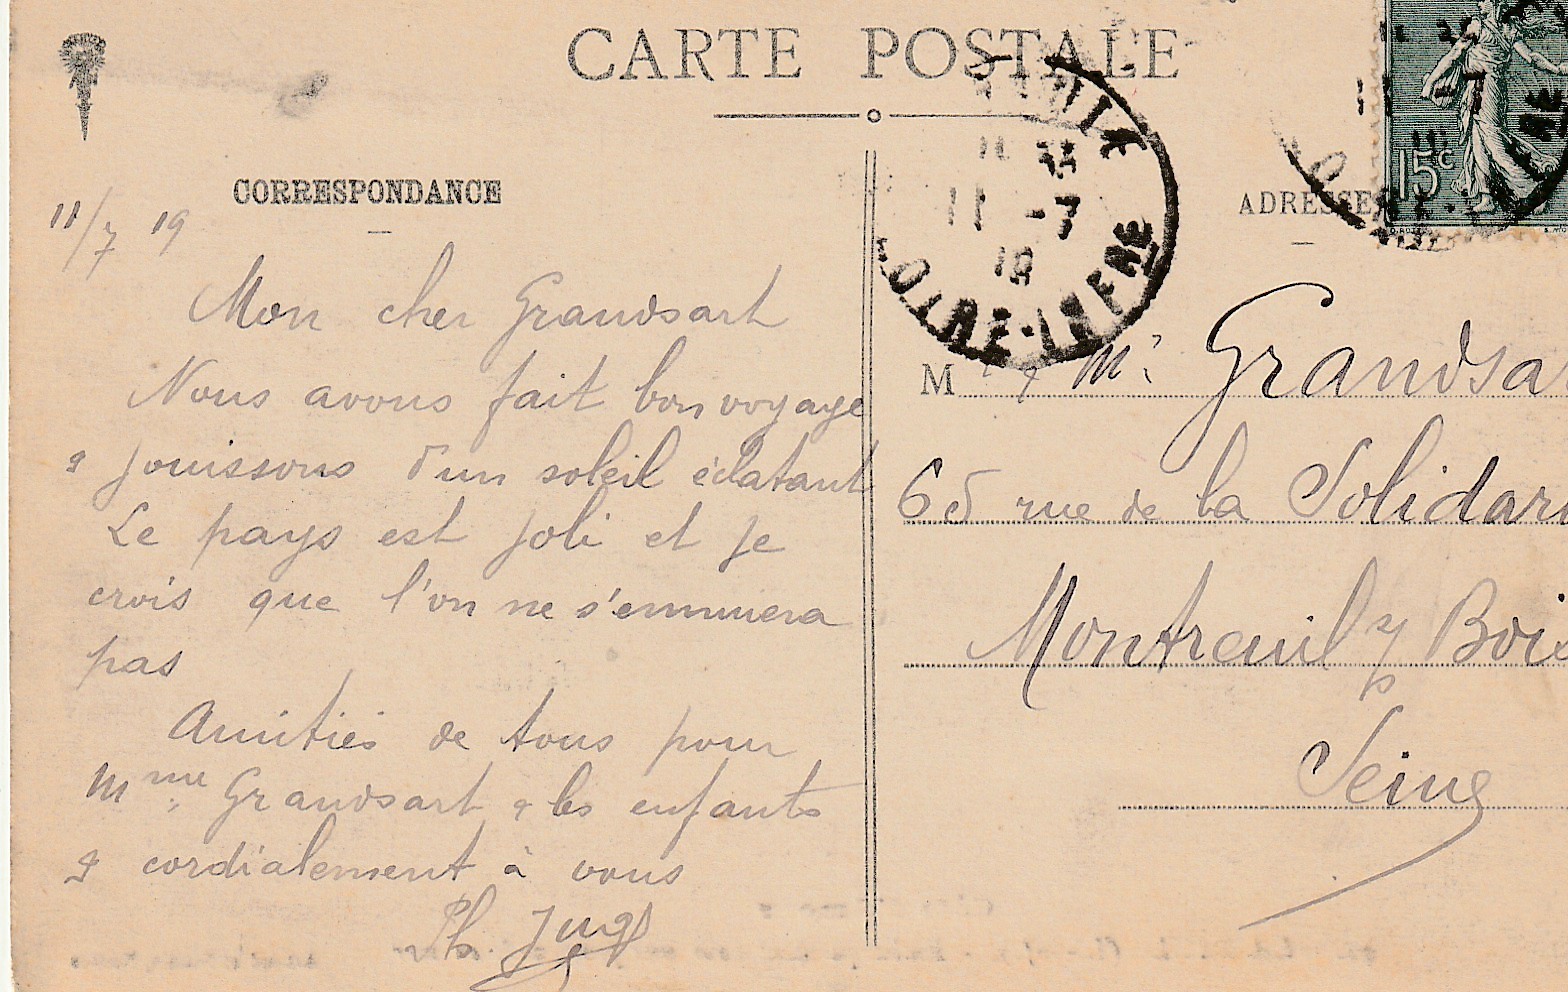 CARTE POSTALE
CORRESPONDANCE
11/7 19
Mon cher Grandsart
Nous avons fait bon voyage
& jouissons d'un soleil éclatant
Le pays est joli et je
crois que l'on ne s'ennuiera
pas
Amitiés de tous pour
Mme Grandsart & les enfants
& cordialement à vous
Ph
11 -7
19
LOIRE-INFRE
ADRESSE
15c
M & Mr Grandsa
65 rue de la Solidari
Montreuil s/ Bois
Seine